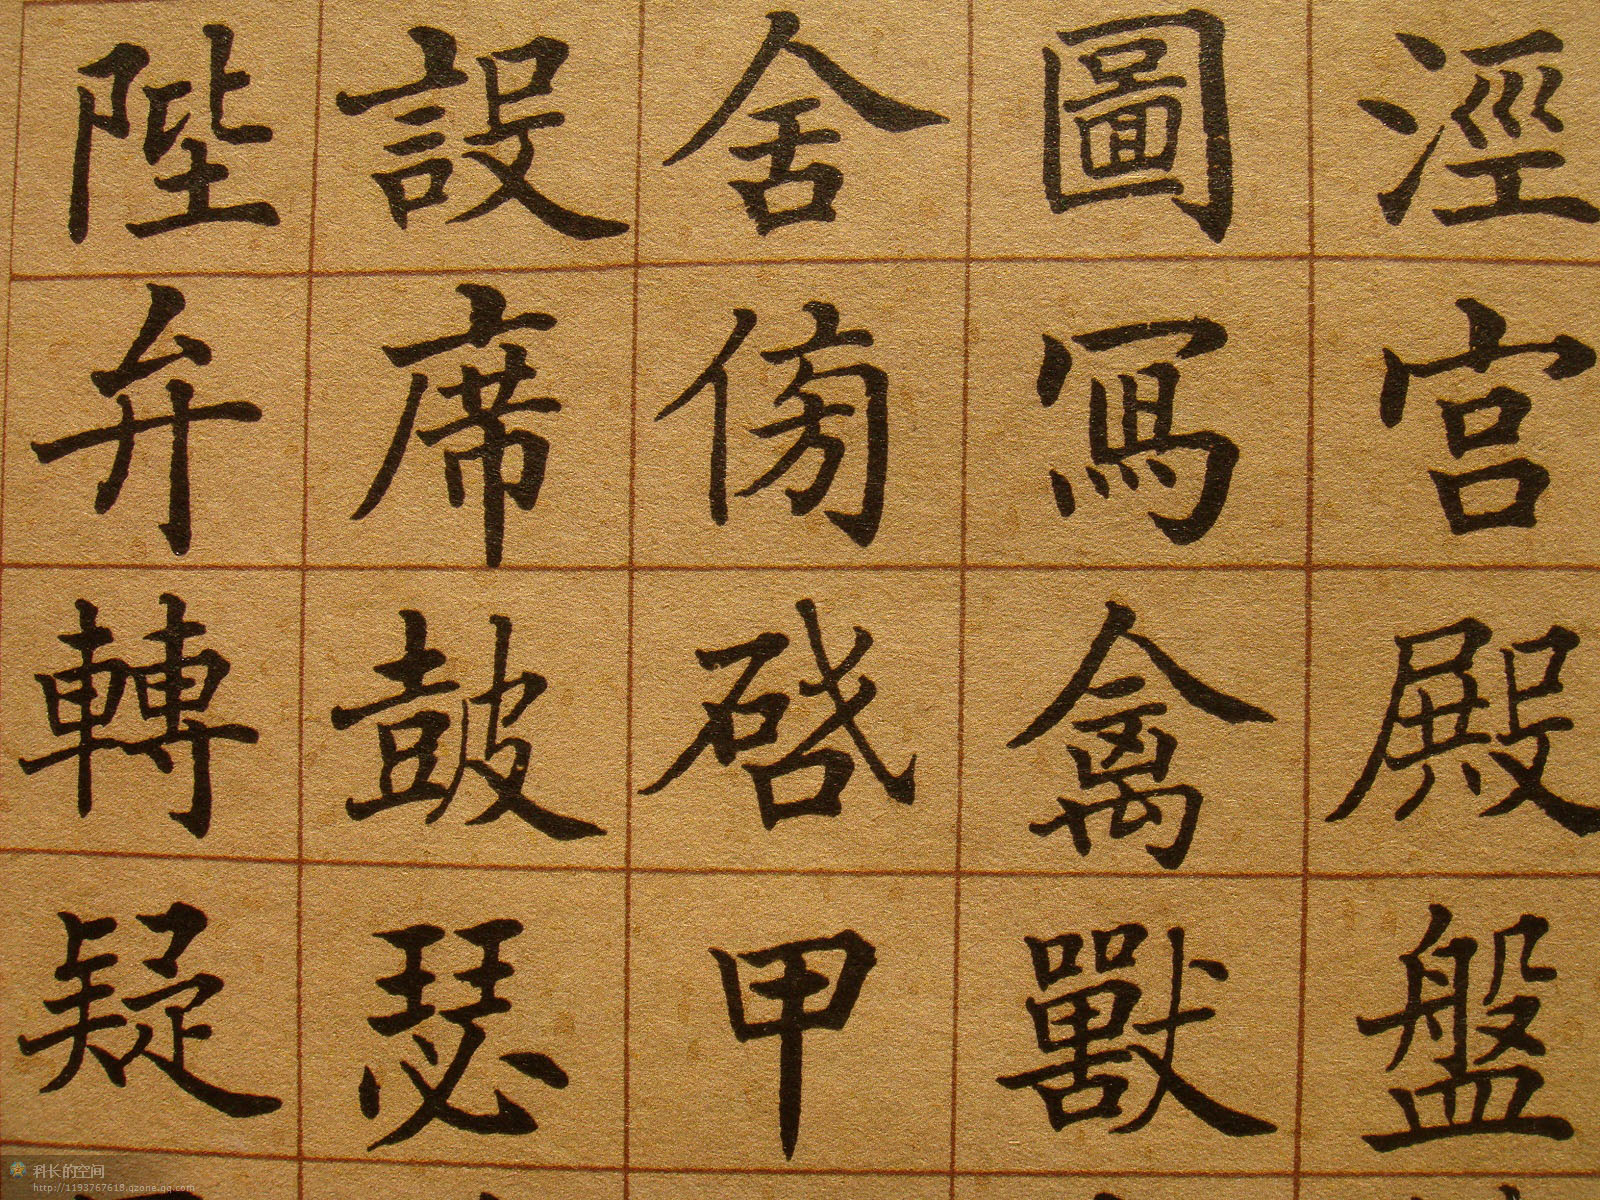 涇宮殿盤
圖寫禽獸
舍傍啓甲
設席鼓瑟
陛弁轉疑
科长的空间
http://1193767618.qzone.qq.com